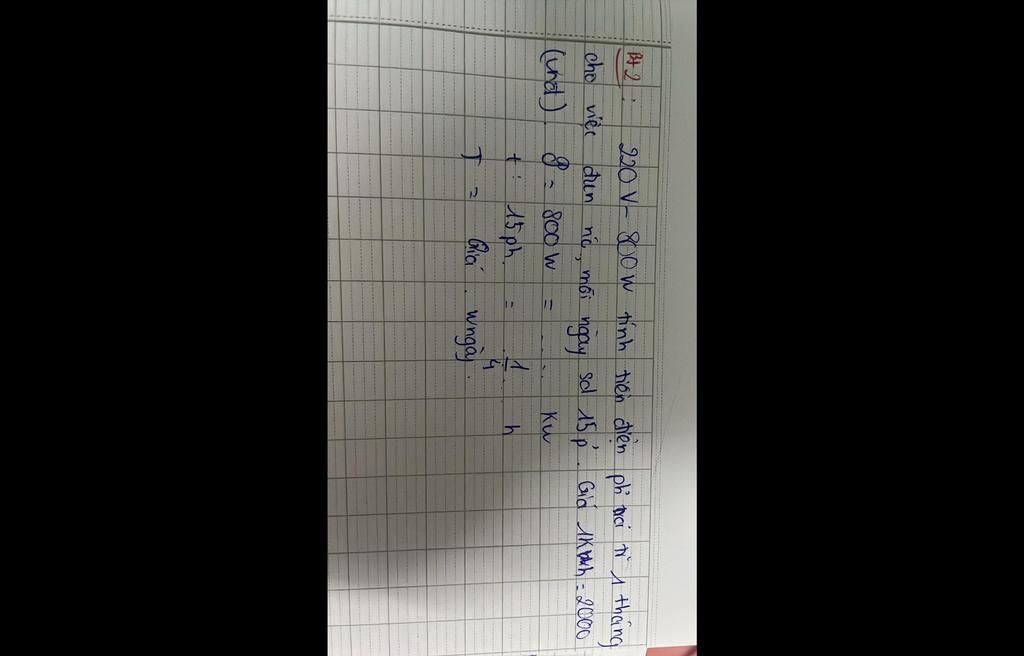 Bt2: 220V - 800W tính tiền điện ph trả tr 1 tháng
cho việc đun nc, mỗi ngày sd 15p. Giá 1KWh = 2000
(vnđ). P = 800W = .... KW
t: 15ph = 1/4 h
T = Giá . Wngày.